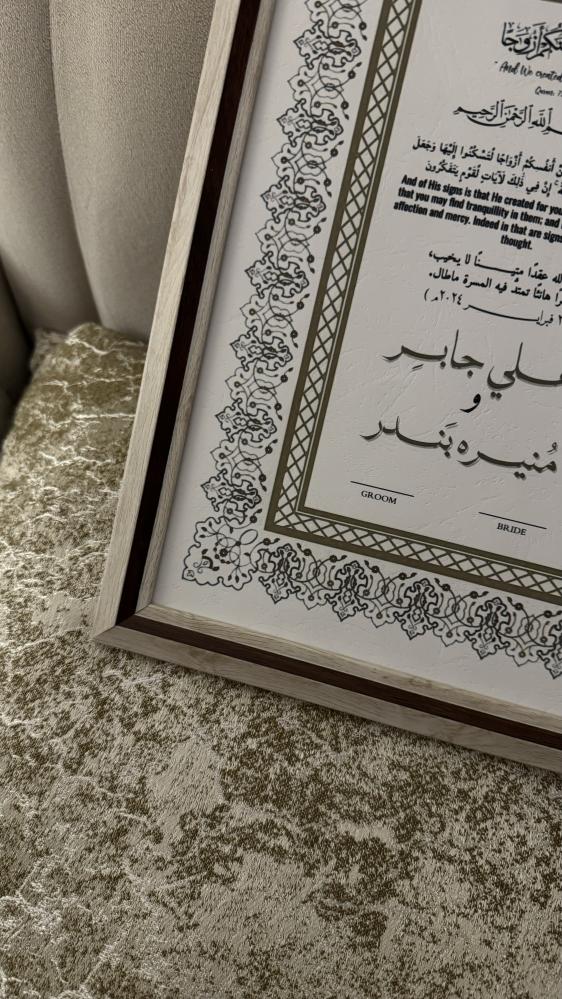 أزوجا
" And We created
Quran: 7
الله الرحمن الرحيم
أنفسكم أزواجا لتسكنوا إليها وجعل
إن في ذلك لآيات لقوم يتفكرون
And of His signs is that He created for you
that you may find tranquillity in them; and
affection and mercy. Indeed in that are signs
thought.
عقدًا متينًا لا يخيب،
هانئًا تمتد فيه المسرة ماطال.
فبراير ٢٠٢٤م )
علي جابر
و
مُنيره بَندر
GROOM
BRIDE